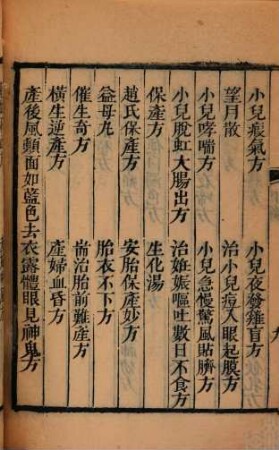 小兒瘕氣方 小兒夜發雞盲方
望月散 治小兒痘入眼起膜方
小兒哮喘方 小兒急慢驚風貼臍方
小兒脫虹大腸出方 治姙娠嘔吐數日不食方
保產方 生化湯
趙氏保產方 安胎保產妙方
益母丸 胎衣不下方
催生奇方 耑治胎前難產方
橫生逆產方 產婦血昏方
產後風顛面如藍色去衣露體眼見神鬼方